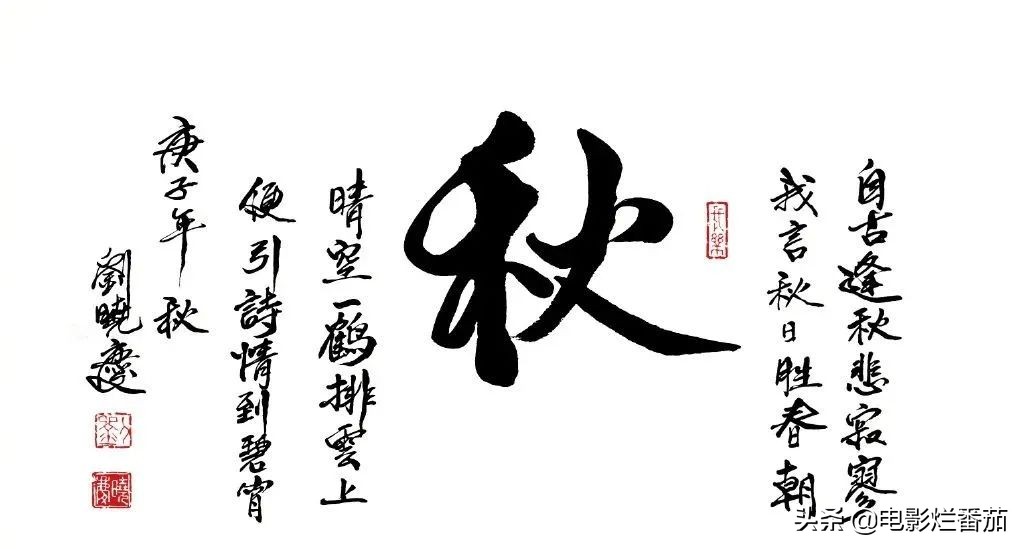 自古逢秋悲寂寥
我言秋日胜春朝
秋
晴空一鶴排雲上
便引詩情到碧宵
庚子年 秋
劉曉慶
头条 @电影烂番茄